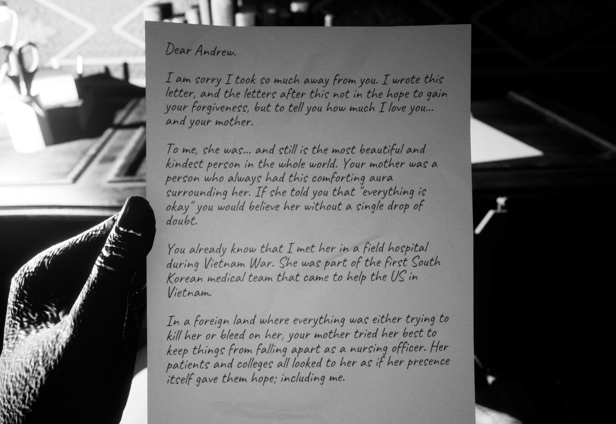 Dear Andrew.
I am sorry I took so much away from you. I wrote this
letter, and the letters after this not in the hope to gain
your forgiveness, but to tell you how much I love you...
and your mother.
To me, she was... and still is the most beautiful and
kindest person in the whole world. Your mother was a
person who always had this comforting aura
surrounding her. If she told you that "everything is
okay" you would believe her without a single drop of
doubt.
You already know that I met her in a field hospital
during Vietnam War. She was part of the first South
Korean medical team that came to help the US in
Vietnam.
In a foreign land where everything was either trying to
kill her or bleed on her, your mother tried her best to
keep things from falling apart as a nursing officer. Her
patients and colleges all looked to her as if her presence
itself gave them hope; including me.